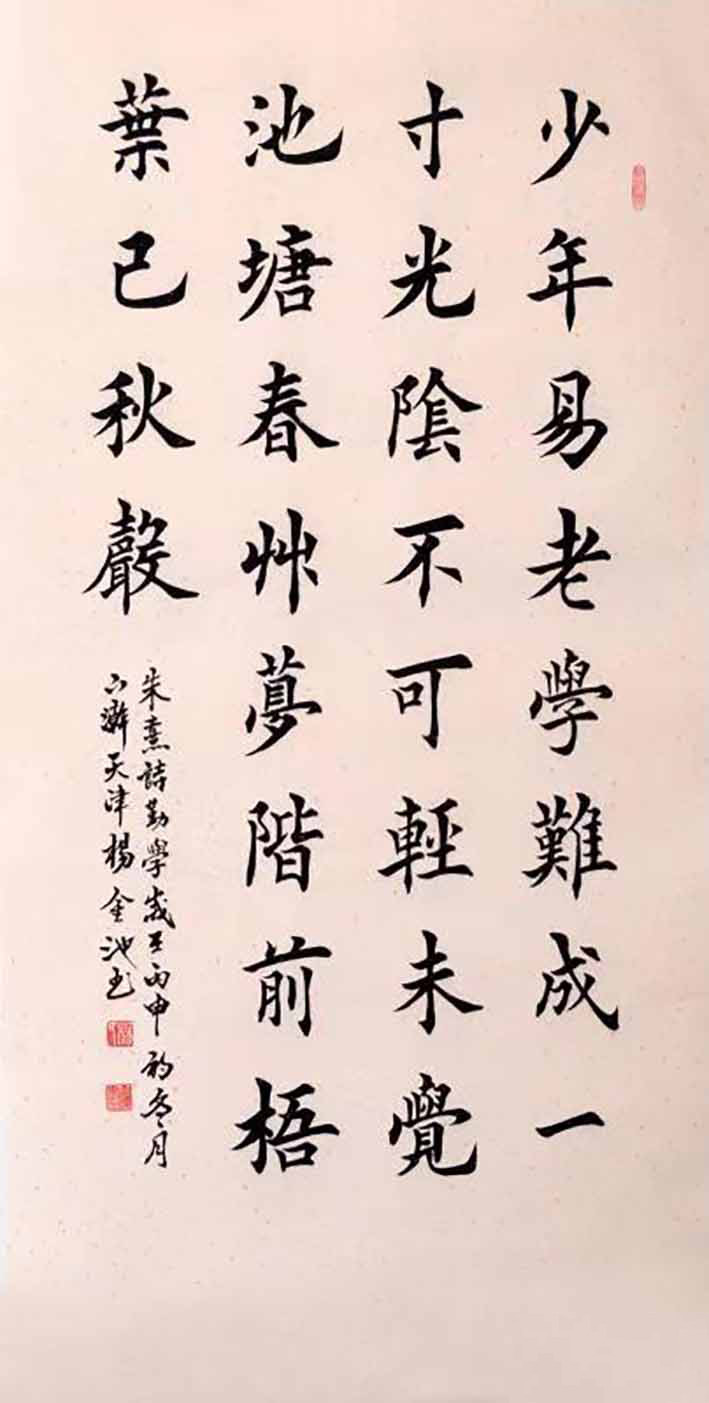 少年易老學難成一
寸光陰不可輕未覺
池塘春艸夢階前梧
葉已秋聲
朱熹詩勤學歲在丙申初冬月
天津楊金池書